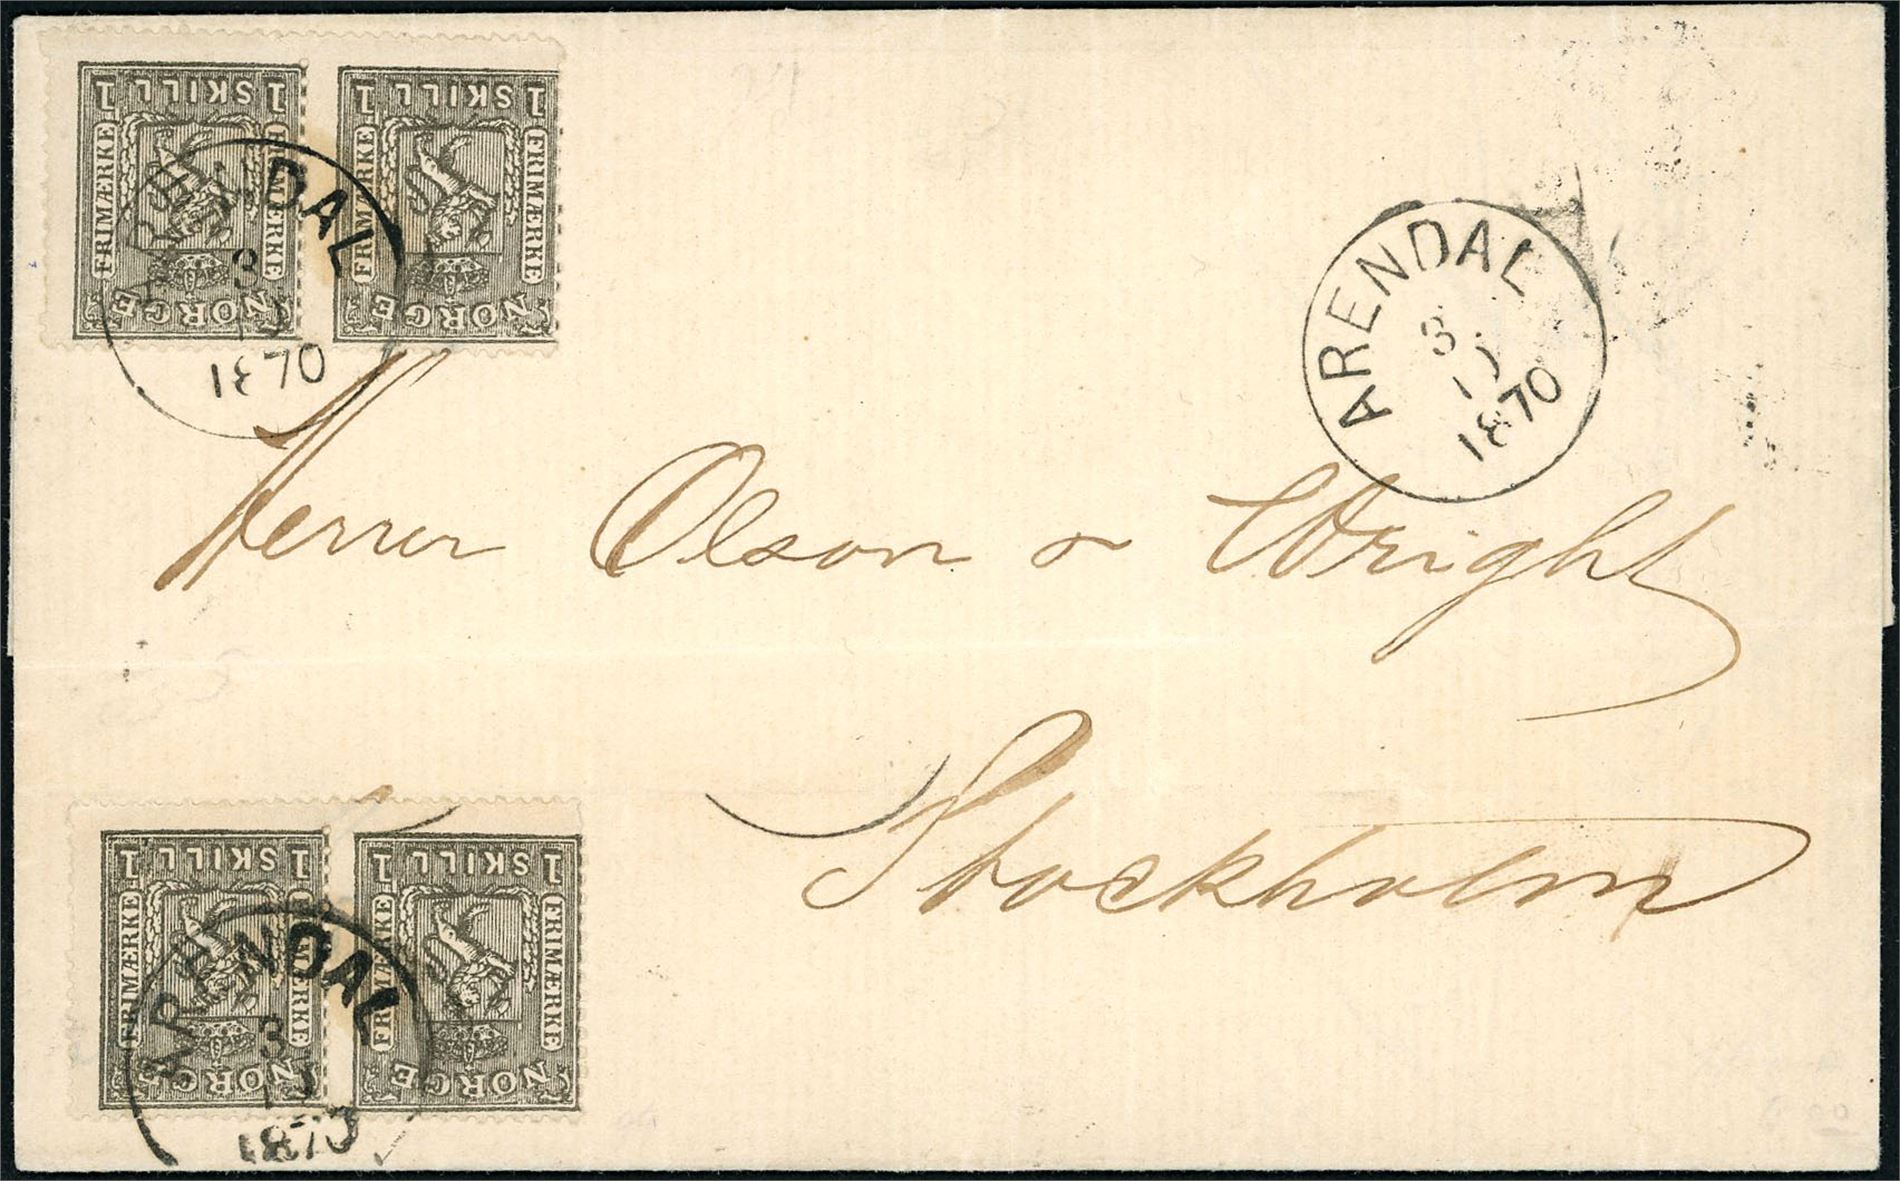 1 SKILL 1
FRIMÆRKE
FRIMÆRKE
NORGE
1 SKILL 1
FRIMÆRKE
FRIMÆRKE
NORGE
ARENDAL
3
1870
ARENDAL
3
1870
Herrer Olson & Wright
Stockholm
1 SKILL 1
FRIMÆRKE
FRIMÆRKE
NORGE
1 SKILL 1
FRIMÆRKE
FRIMÆRKE
NORGE
ARENDAL
3
1870